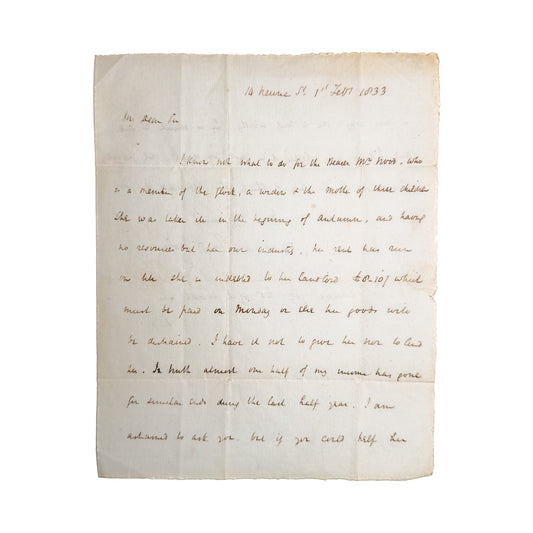 1st Feby 1833
My dear Sir
I know not what to do for the Bearer Mrs who
is a member of the flock, a widow & the mother of three children
She was taken ill in the beginning of autumn, and having
no resources but her own industry, her rent has run
on her she is indebted to her Landlord which
must be paid on Monday or else her goods will
be distrained. I have it not to give her nor to lend
her. In truth almost one half of my income has gone
for similar ends during the last half year. I am
ashamed to ask you, but if you could help her